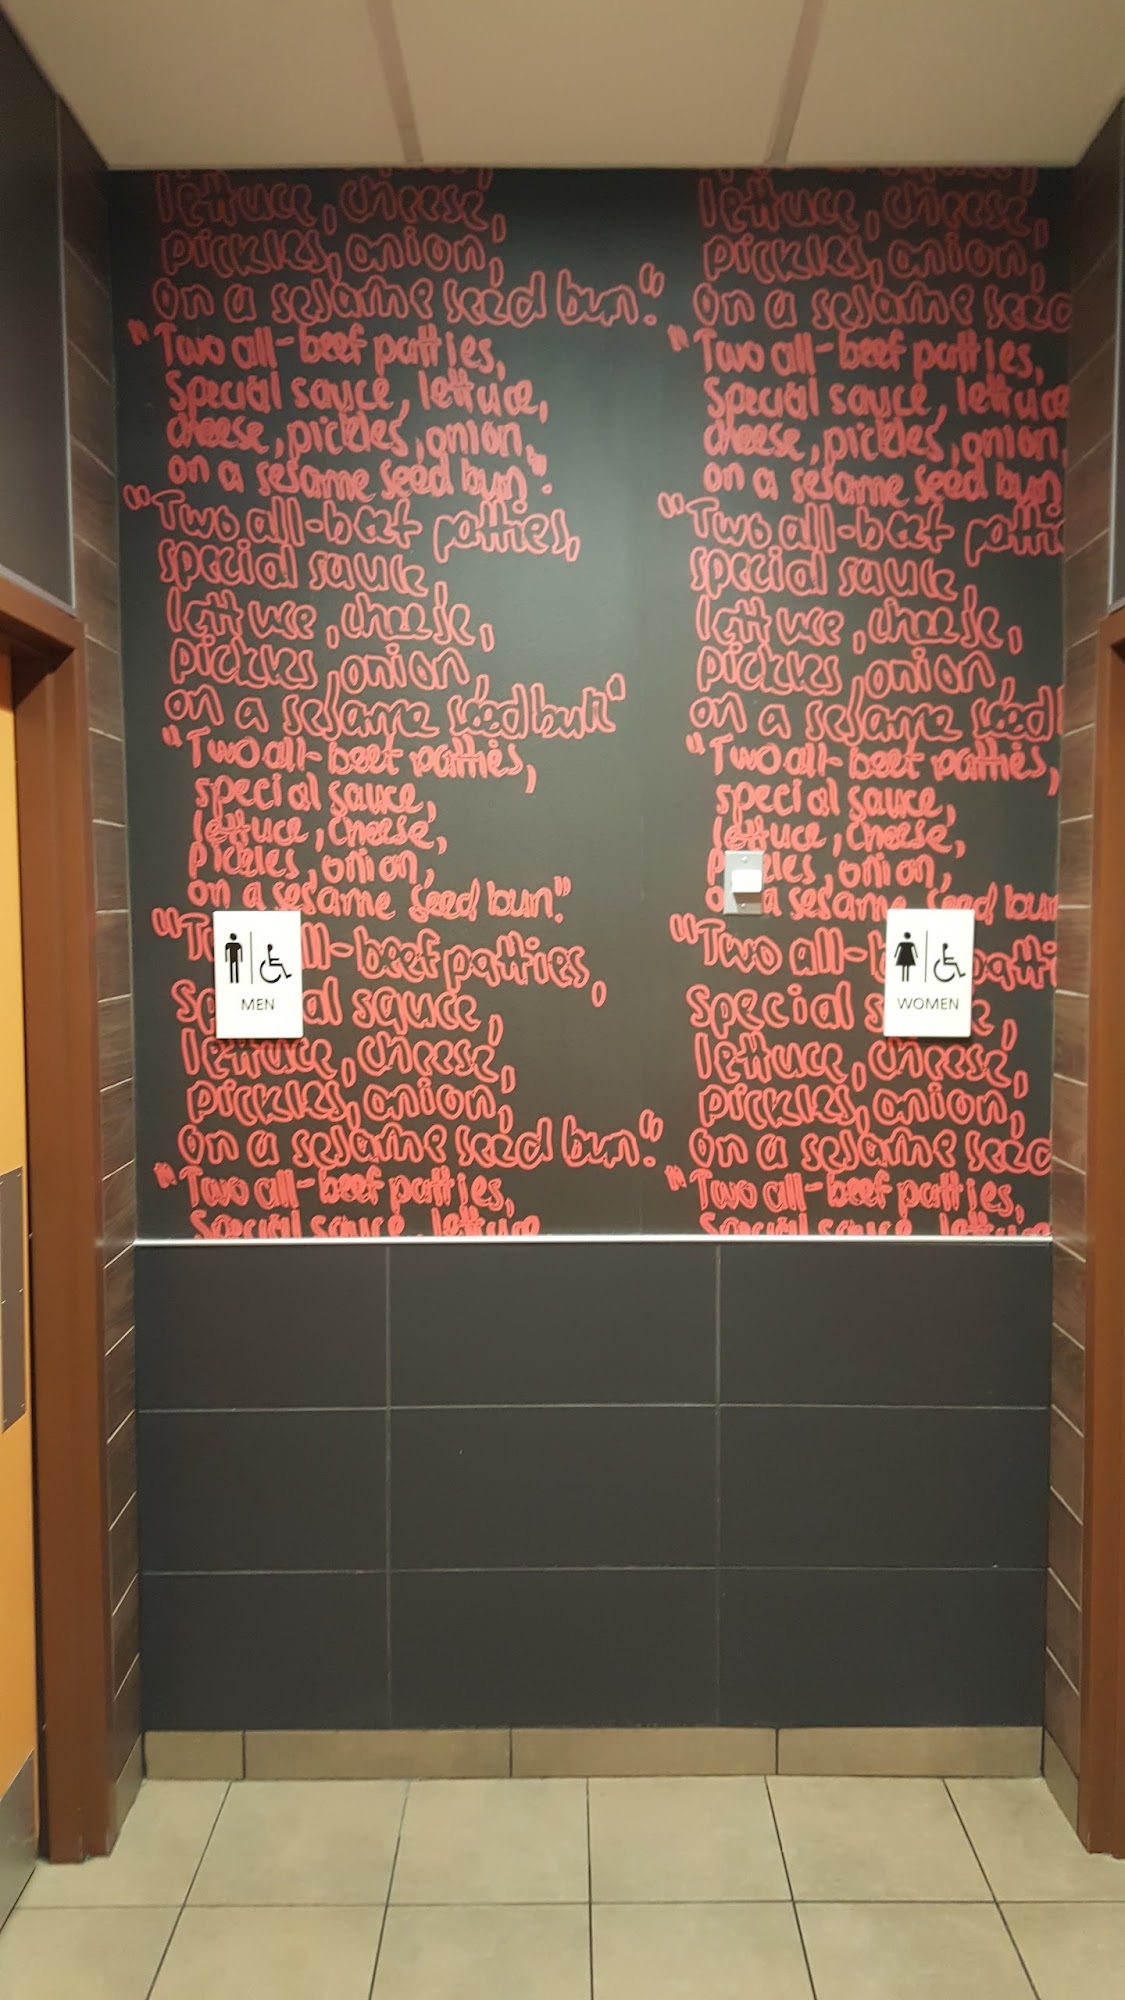 lettuce, cheese,
pickles, onion,
on a sesame seed bun."
"Two all-beef patties,
Special sauce, lettuce,
cheese, pickles, onion,
on a sesame seed bun".
"Two all-beef patties,
special sauce
lettuce, cheese,
pickles, onion,
on a sesame seed bun"
"Two all-beef patties,
special sauce,
lettuce, cheese,
pickles, onion,
on a sesame seed bun".
all-beef patties,
sauce,
lettuce, cheese,
pickles, onion,
on a sesame seed bun."
"Two all-beef patties,
Special sauce, lettuce
MEN
lettuce, cheese,
pickles, onion,
on a sesame seed
"Two all-beef patties,
Special sauce, lettuce
cheese, pickles, onion
on a sesame seed bun
"Two all-beef patties
special sauce
lettuce, cheese,
pickles, onion
on a sesame seed
"Two all-beef patties,
special sauce,
lettuce, cheese,
onion,
a sesame seed bun
"Two all-
special
lettuce, cheese,
pickles, onion,
on a sesame seed
"Two all-beef patties,
Special sauce, lettuce
WOMEN